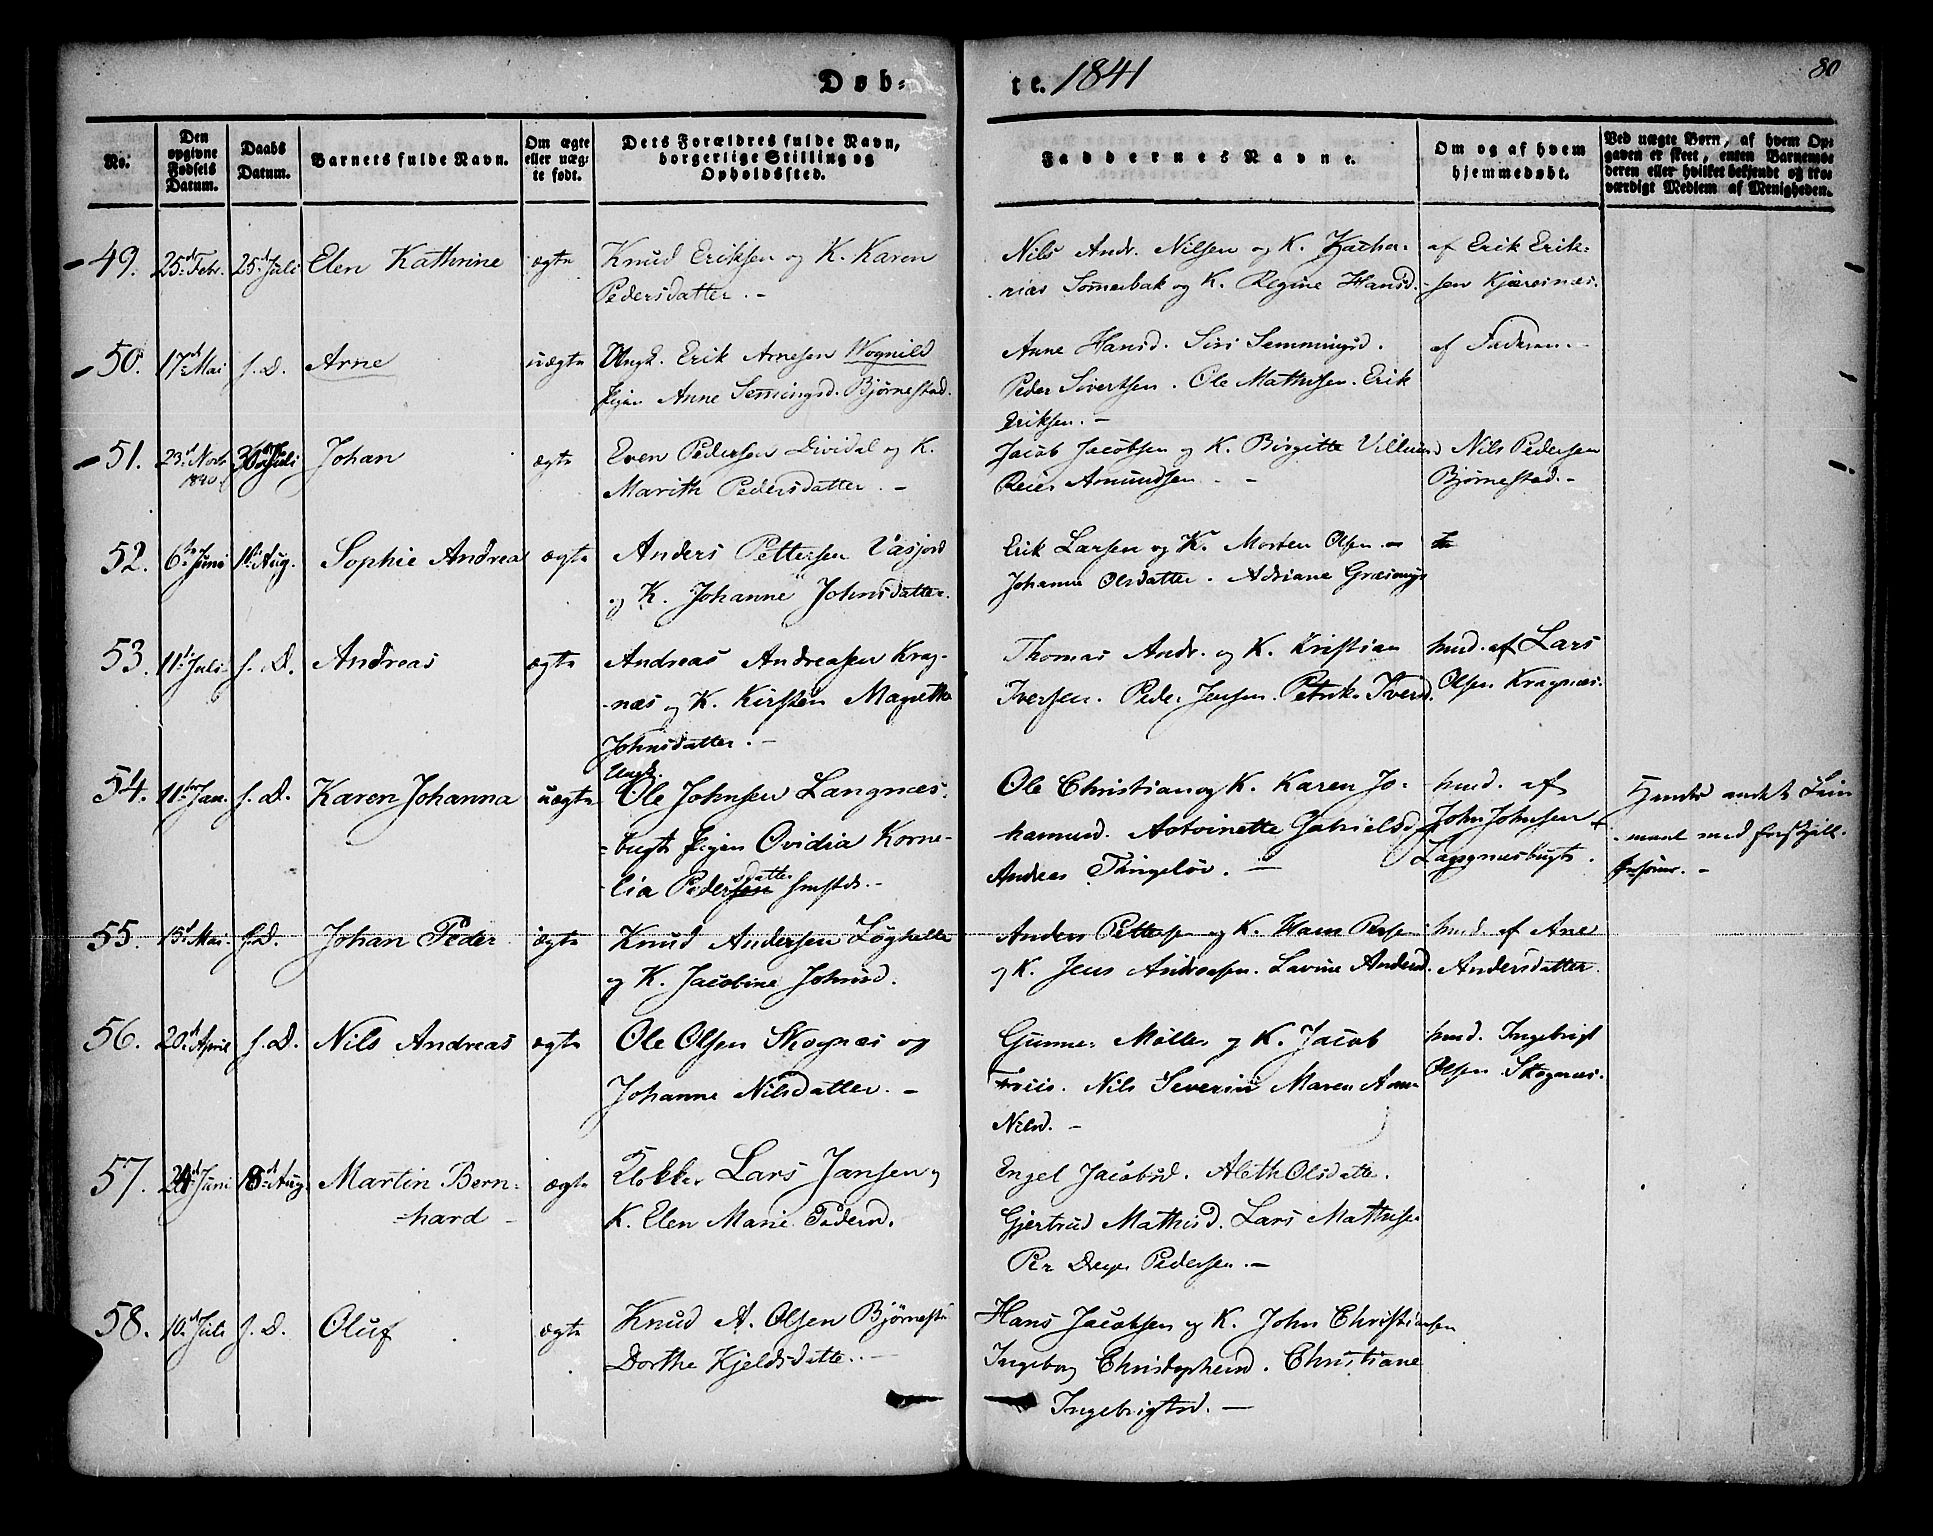 Døb-
te. 1841
80
No.
Den
opgivne
Fødsels
Datum.
Daabs
Datum.
Barnets fulde Navn.
Om ægte
eller uæg-
te født.
Dets Forældres fulde Navn,
borgerlige Stilling og
Opholdssted.
Faddernes Navne.
Om og af hvem
hjemmedøbt.
Ved uægte Børn, af hvem Op-
gaven er skeet, enten Barnemo-
deren eller hvilket bekjendt og tro-
værdigt Medlem af Menigheden.
49. 25d Febr. 25d Juli Elen Kathrine ægte
Knud Eriksen og K. Karen
Pedersdatter. -
Nils Andr. Nilsen og K. Zacha-
rias Somerbak og K. Regine Hansd.
af Erik Erik-
sen Kjæresnæs.
50. 17d Mai s. D. Arne uægte
Ungk. Erik Arnesen Wognild
Pigen Anne Semingsd. Bjørnestad.
Anne Hansd. Siri Semmingsd.
Peder Sivertsen. Ole Mathisen. Erik
Eriksen. -
af Faderen. -
51. 23d Novb. 1840 Juli Johan ægte
Even Pedersen Dividal og K.
Marith Pedersdatter. -
Jacob Jacobsen og K. Birgitte
Reier Amundsen. -
Nils Pedersen
Bjørnestad. -
52. 6te Juni 1d Aug. Sophie Andrea ægte
Anders Pettersen Vasjord
og K. Johanne Johnsdatter.
Erik Larsen og K. Morten Olsen. -
Johanne Olsdatter. Adriane
53. 11te Juli s. D. Andreas ægte
Andreas Andreasen Krag-
-næs og K. Kirsten Magrethe
Johnsdatter. -
Thomas Andr. og K. Kristian
Iversen. Peder Jensen. Petrike Iversd.
hmd. af Lars
Olsen Kragnæs.
54. 11te Jan. s. D. Karen Johanna uægte
Ungk.
Ole Johnsen Langnæs-
-bugt Pigen Ovidia Korne-
-lia Pedersdatter
Ole Christian og K. Karen Jo-
hannesd. Antoinette Gabrielsd.
Andreas -
hmd. af
John Johnsen
Langnæsbugt.
andet Leir-
-maal med
55. 15d Mai. s. D. Johan Peder ægte
Knud Andersen Løghelle
og K. Jacobine Johnsd.
Anders Pettersen og K. Hans
og K. Jens Andreasen. Lavine Andersd.
hmd. af Ane
Andersdatter.
56. 20d April s. D. Nils Andreas ægte
Ole Olsen Skognæs og
Johanne Nilsdatter. -
Gunner Møller og K. Jacob
Friis. Nils Severin Maren Anne
Nilsd. -
hmd. Ingebrigt
Olsen Skognæs.
57. 24d Juni 8d Aug. Martin Bern-
-hard - ægte
Klokker Lars Jansen og
K. Elen Marie Pedersd.
Engel Jacobsd. Aleth Olsdatter.
Gjertrud Mathisd. Lars Mathisen
Per Dreyer Pedersen. -
58. 10d Juli s. D. Oluf ægte
Knud A. Olsen Bjørnestad
Dorthe Kjeldsdatter. -
Hans Jacobsen og K. John Christiansen
Ingeborg Christophersd. Christiane
Ingebrigtsd. -